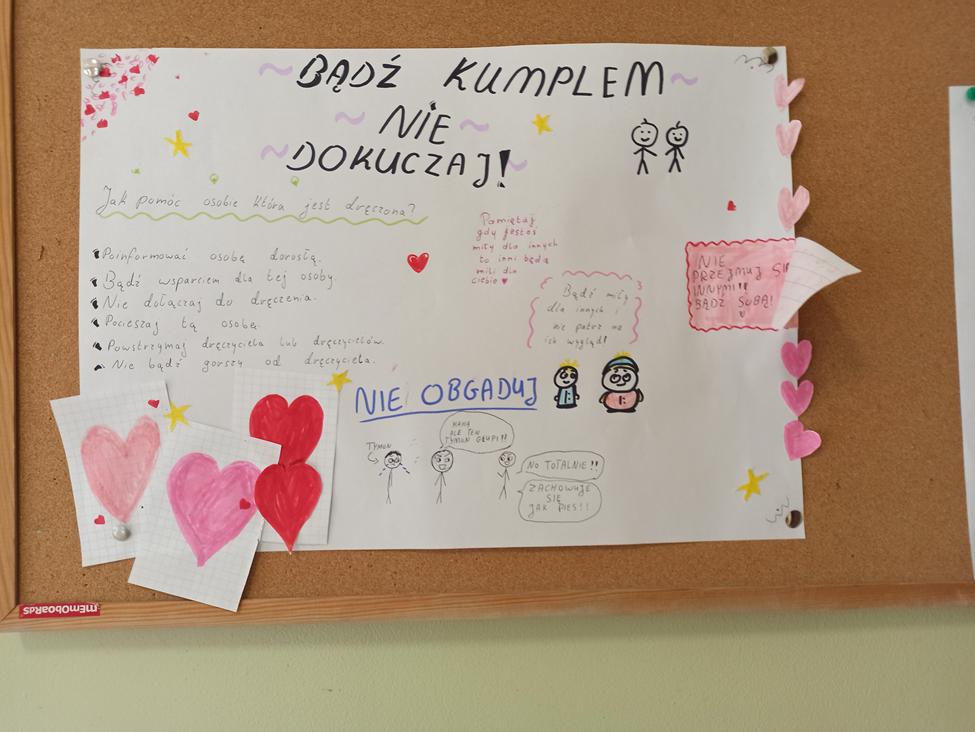 BĄDŹ KUMPLEM
NIE
DOKUCZAJ!
Jak pomóc osobie która jest dręczona?
Poinformować osobę dorosłą.
Bądź wsparciem dla tej osoby.
Nie dołączaj do dręczenia.
Pocieszaj tą osobę.
Powstrzymaj dręczyciela lub dręczycielów.
Nie bądź gorszy od dręczyciela.
Pamiętaj
gdy jesteś
miły dla innych
to inni będą
mili dla
ciebie ♥
Bądź miły
dla innych i
nie patrz na
ich wygląd!
NIE
PRZEJMUJ SIĘ
INNYMI!!
BĄDŹ SOBĄ!
NIE OBGADUJ
TYMON
HAHA
ALE TEN
TYMON GŁUPI!!
NO TOTALNIE!!
ZACHOWUJE
SIĘ
JAK PIES!!
memoboards